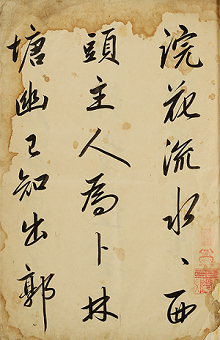 浣花流水〻西
頭主人為卜林
塘幽已知出郭